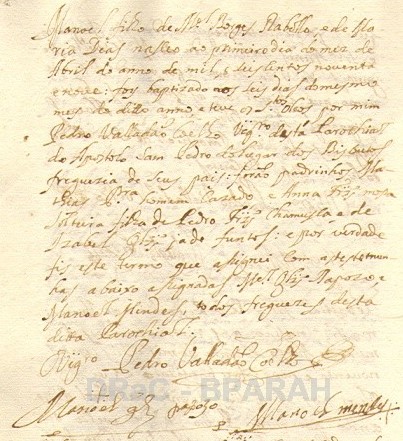 Manoel filho de M.el Borges Rabello, e de Ma
ria Dias nasceo ao primeiro dia do mez de
Abril do anno de mil, e seis centos noventa
e nove: foy baptizado aos seis dias do mesmo
mes do ditto anno e teve os S.tos Oleos por mim
Pedro Valladão Coelho Vig.ro desta Parochial
do Apostolo Sam Pedro do lugar dos Biscoutos
freguezia de seus pais: forão padrinhos Ma
thias homem Cazado e Anna moça
solteira filha de Pedro e de
Izabel já defuntos: e por verdade
fis este termo que asignei com as testemun
has abaixo asignadas M.el Raposo, e
Manoel Mendes, todos freguezes desta
ditta Parochial.
Vig.ro Pedro Valladão Coelho
DRaC - BPARAH
Manoel raposo Manoel mendes